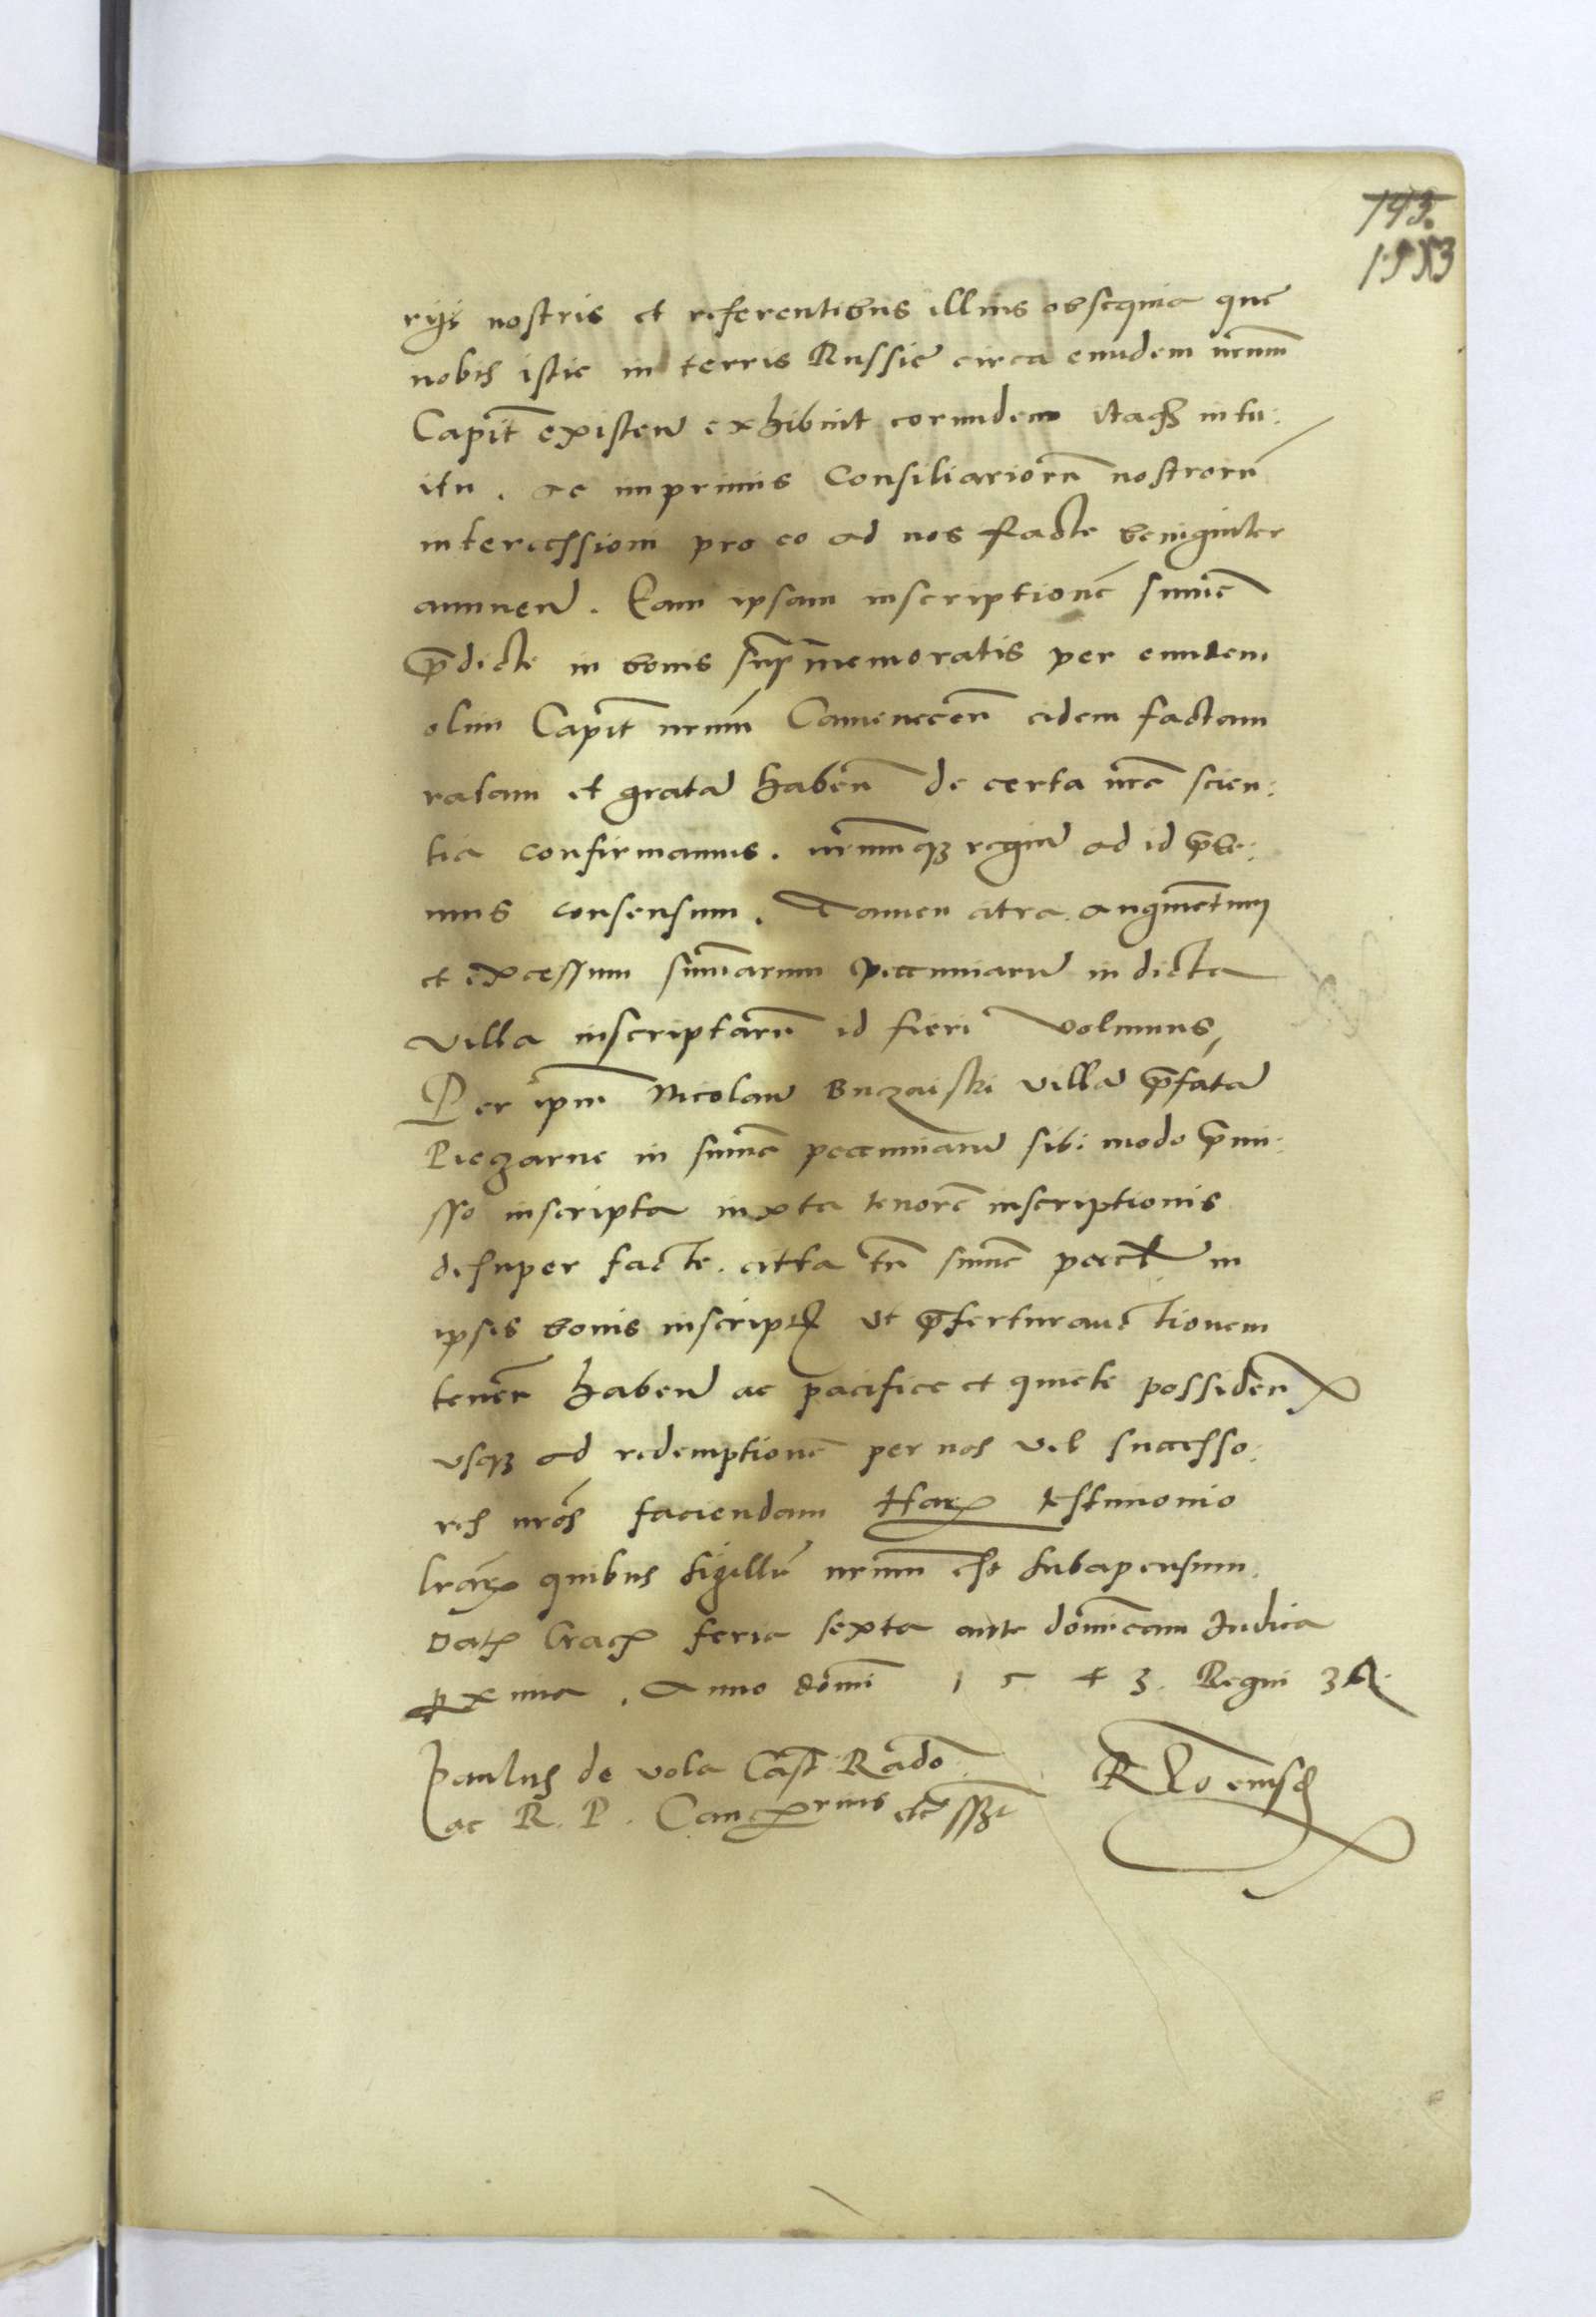 143.
153
rijs nostris et referentibus illius obsequia que
nobis istic in terris Russie circa eundem nrum
Capit existen exhibuit eorundem itaq intu:
itu. ac imprimis Consiliarioru nostroru
intercessioni pro eo ad nos facte benigniter
annuen. Eam ipsam inscriptione summe
predicte in bonis supmemoratis per eundem
olim Capit nrum Camenecen eidem factam
ratam et grata haben de certa nre scien:
tia confirmamus. nrumq regiu ad id prebe:
mus consensum. Tamen citra augmentum
et excessum summarum pecuniaru in dicta
villa inscriptaru id fieri volumus,
Per ipm Nicolau Buczaiski villa prefata
Pieczarne in summe pecuniaru sibi modo premi:
sso inscripta iuxta tenore inscriptionis
desuper facte. citra tn summe pecu in
ipsis bonis inscript ut prefertur auctionem
tener haben ac pacifice et quiete possiden
usq ad redemptione per nos vel successo:
res nros faciendam Har testimonio
lrar quibus sigillu nrum est subapensum.
Dat Crac feria sexta ante dominicam Iudica
proxima. Anno domi 1543. Regni 37.
Paulus de vola Cast Rado
ac R. P. Cancrius